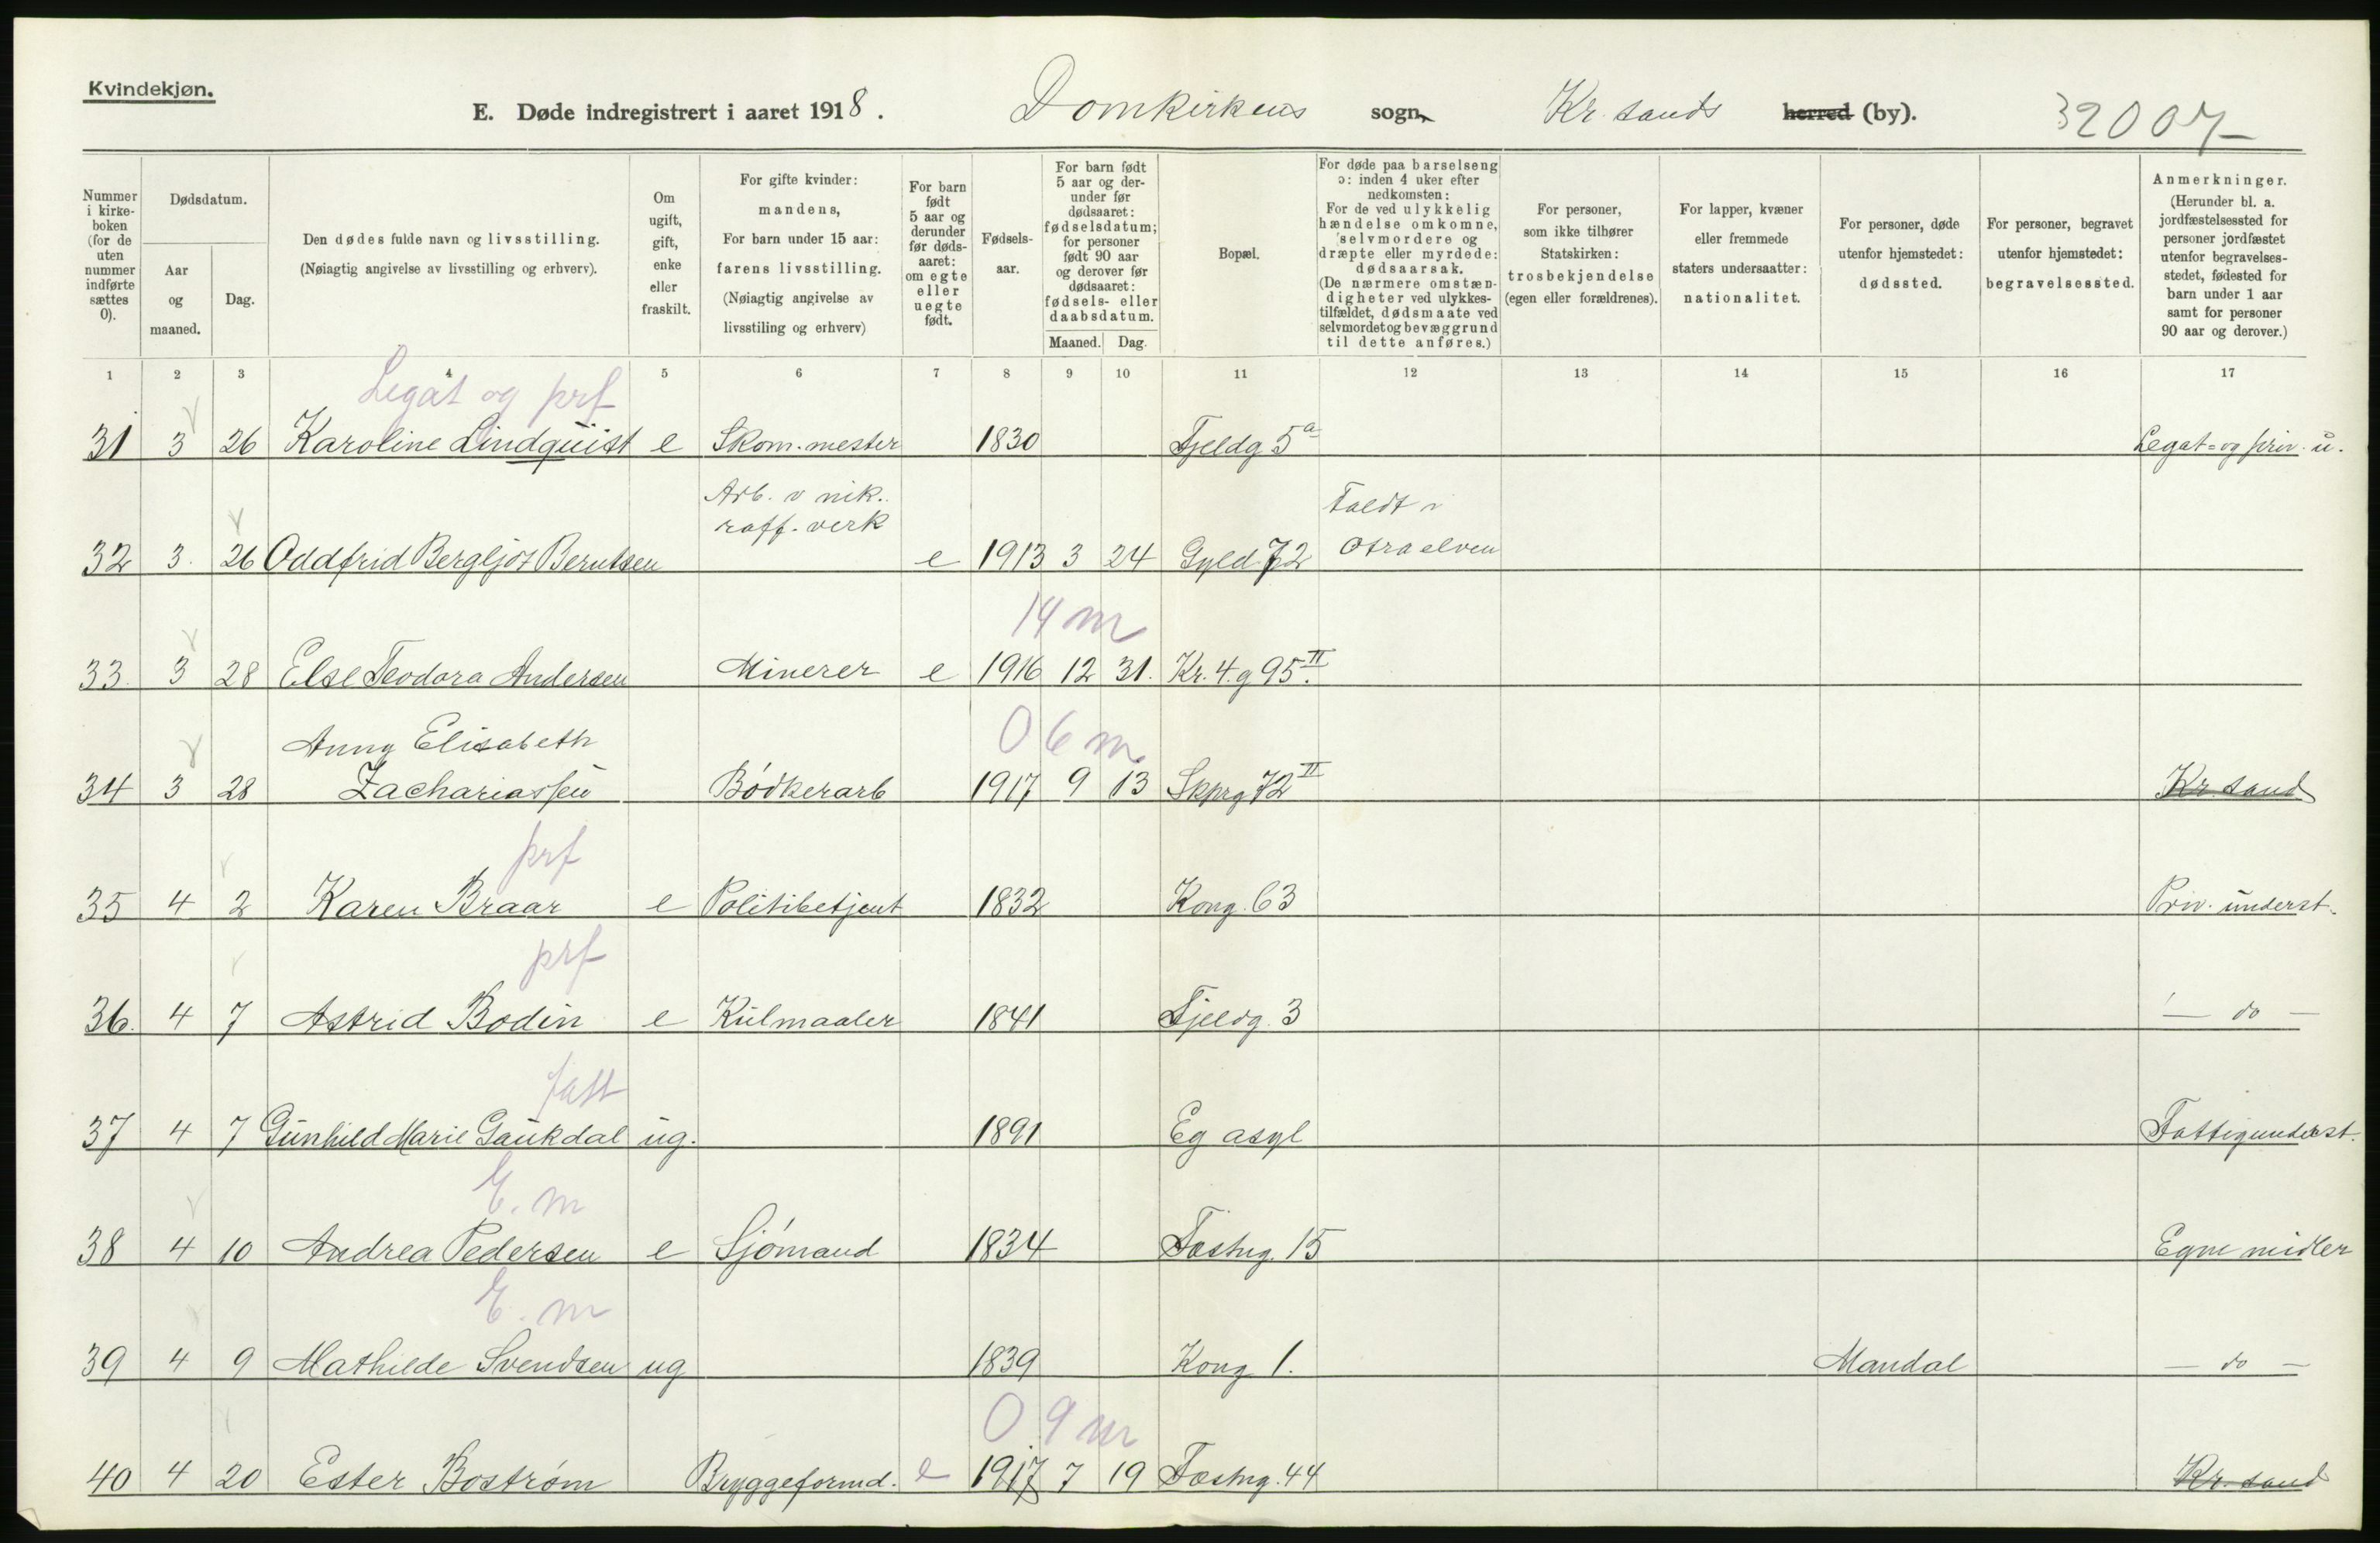 Kvindekjøn.
E. Døde indregistrert i aaret 1918. Domkirkens sogn, Kr. sands herred (by). 32007
Nummer i kirke-boken (for de uten nummer indførte sættes 0).
Dødsdatum.
Aar og maaned.
Dag.
Den dødes fulde navn og livsstilling.
(Nøiagtig angivelse av livsstilling og erhverv).
Om ugift, gift, enke eller fraskilt.
For gifte kvinder: mandens,
For barn under 15 aar: farens livsstilling.
(Nøiagtig angivelse av livsstiling og erhverv)
For barn født 5 aar og derunder før døds-aaret: om egte eller uegte født.
Fødsels-aar.
For barn født 5 aar og der-under før dødsaaret: fødselsdatum; for personer født 90 aar og derover før dødsaaret: fødsels- eller daabsdatum.
Maaned. Dag.
Bopæl.
For døde paa barselseng ɔ: inden 4 uker efter nedkomsten:
For de ved ulykkelig hændelse omkomne, selvmordere og dræpte eller myrdede: dødsaarsak.
(De nærmere omstæn-digheter ved ulykkes-tilfældet, dødsmaate ved selvmordet og bevæggrund til dette anføres.)
For personer, som ikke tilhører Statskirken: trosbekjendelse (egen eller forældrenes).
For lapper, kvæner eller fremmede staters undersaatter: nationalitet.
For personer, døde utenfor hjemstedet: dødssted.
For personer, begravet utenfor hjemstedet: begravelsessted.
Anmerkninger.
(Herunder bl. a. jordfæstelsessted for personer jordfæstet utenfor begravelses-stedet, fødested for barn under 1 aar samt for personer 90 aar og derover.)
1 2 3 4 5 6 7 8 9 10 11 12 13 14 15 16 17
Legat og prf
31 3 26 Karoline Lindquist e Skom. mester 1830 Fjeldg 5a Legat= og priv. u.
Arb. v nik. raff. verk
Faldt i
32 3. 26 Oddfrid Bergljot Berntsen e 1913 3 24 Gyld. 72 Otraelven
14 m
33. 3 28 Else Teodora Andersen Minerer e 1916 12 31. Kr. 4. g 95 II.
Anny Elisabeth
06 m
34 3 28 Zachariassen Bödkerarb 1917 9 13 Skprg 72 II Kr. sand
prf
35 4 2 Karen Braar e Politibetjent 1832 Kong. 63 Priv. underst.
prf
36. 4 7 Astrid Bodin e Kulmaaler 1841 Fjeldg. 3 — do —
fatt
37 4 7 Gunhild Marie Gaukdal ug. 1891 Eg asyl Fattigunderst.
E. m
38 4 10 Andrea Pedersen e Sjömand 1834 Fæstng. 15 Egne midler
E. m
39 4 9 Mathilde Svendsen ug 1839 Kong 1. Mandal — do —
09 m
40 4 20 Ester Boström Bryggeformd. e 1917 7 19 Fæstng. 44 Kr. sand